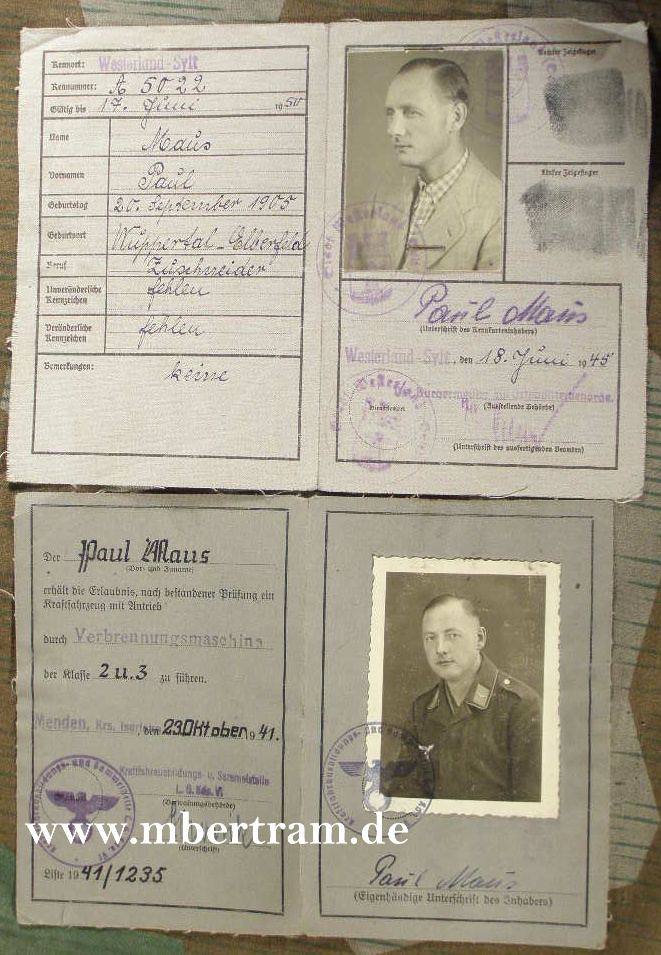 Kennort: Westerland-Sylt
Kennummer: A 5022
Gültig bis 17. Juni 1950
Name Maus
Vornamen Paul
Geburtstag 20. September 1905
Geburtsort Wuppertal-Elberfeld
Beruf Zuschneider
Unveränderliche Kennzeichen fehlen
Veränderliche Kennzeichen fehlen
Bemerkungen: keine
Rechter Zeigefinger
Linker Zeigefinger
Paul Maus
(Unterschrift des Kennkarteninhabers)
Westerland-Sylt, den 18. Juni 1945
Bürgermeister als Ortspolizeibehörde.
(Ausstellende Behörde)
Dienststempel
(Unterschrift des ausfertigenden Beamten)
Der Paul Maus
(Vor- und Zuname)
erhält die Erlaubnis, nach bestandener Prüfung ein
Kraftfahrzeug mit Antrieb
durch Verbrennungsmaschine
der Klasse 2 u. 3 zu führen.
Menden, Krs. Iserlohn den 23. Oktober 1941.
Kraftfahrausbildungs- u. Sammelstelle
L. G. Kdo. VI
(Verwaltungsbehörde)
(Unterschrift)
Liste 19 41/1235
Paul Maus
(Eigenhändige Unterschrift des Inhabers)
www.mbertram.de